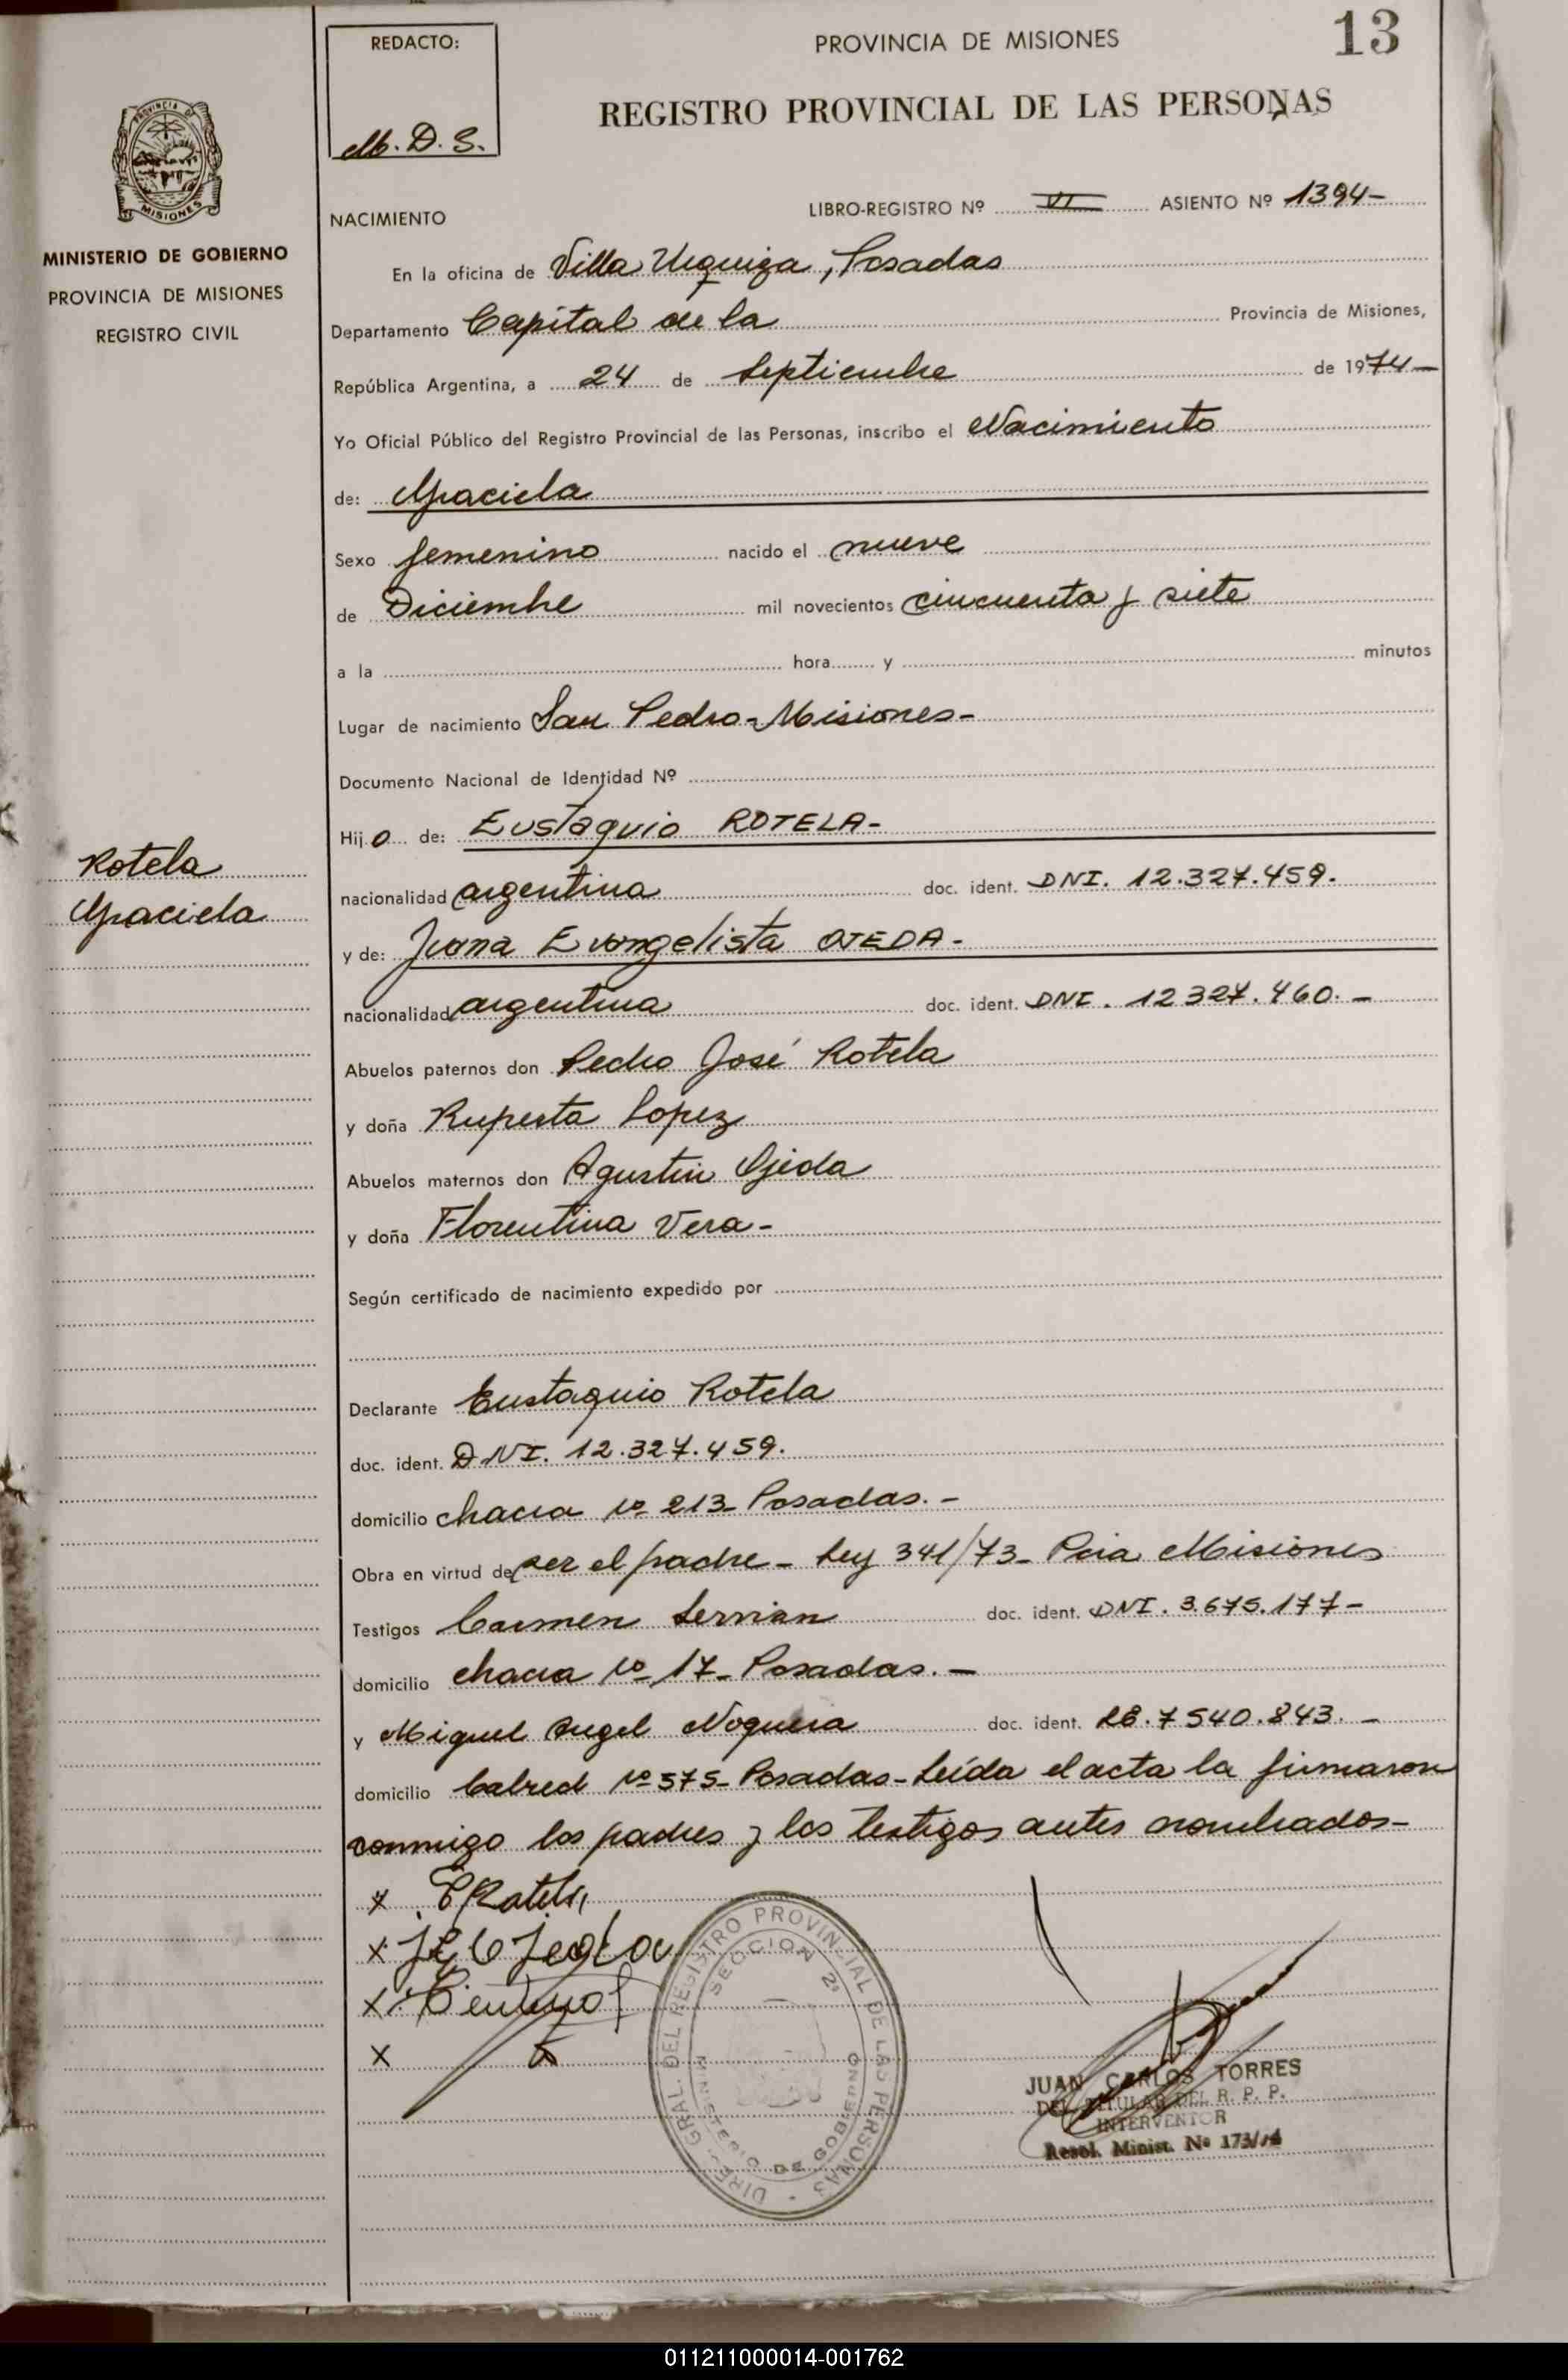 REDACTO:
M. D. S.
PROVINCIA DE MISIONES
13
REGISTRO PROVINCIAL DE LAS PERSONAS
PROVINCIA DE
MISIONES
MINISTERIO DE GOBIERNO
PROVINCIA DE MISIONES
REGISTRO CIVIL
NACIMIENTO
LIBRO-REGISTRO Nº VI ASIENTO Nº 1394-
En la oficina de Villa Urquiza, Posadas
Departamento Capital de la Provincia de Misiones,
República Argentina, a 24 de Septiembre de 1974-
Yo Oficial Público del Registro Provincial de las Personas, inscribo el Nacimiento
de: Graciela
Sexo femenino nacido el nueve
de Diciembre mil novecientos cincuenta y siete
a la hora y minutos
Lugar de nacimiento San Pedro-Misiones-
Documento Nacional de Identidad Nº
Hijo de: Eustaquio ROTELA-
Rotela
Graciela
nacionalidad argentina doc. ident. DNI. 12.327.459.
y de: Juana Evangelista OJEDA-
nacionalidad argentina doc. ident. DNI. 12327.460.-
Abuelos paternos don Pedro José Rotela
y doña Ruperta Lopez
Abuelos maternos don Agustin Ojeda
y doña Florentina Vera-
Según certificado de nacimiento expedido por
Declarante Eustaquio Rotela
doc. ident. DNI. 12.327.459.
domicilio chacra Nº 213- Posadas.-
Obra en virtud de ser el padre- Ley 341/73- Pcia Misiones
Testigos Carmen Servian doc. ident. DNI. 3.675.177-
domicilio chacra Nº 17- Posadas.-
y Miguel Angel Noguera doc. ident. 7540.843.-
domicilio Cabred Nº 575- Posadas- Leída el acta la firmaron
conmigo los padres y los testigos antes nombrados-
x E Rotela
x J E Ojeda
x
x
DIREC. GRAL. DEL REGISTRO PROVINCIAL DE LAS PERSONAS
SECCION 2ª
MINISTERIO DE GOBIERNO
JUAN CARLOS TORRES
DEL. TITULAR DEL R. P. P.
INTERVENTOR
Resol. Minist. Nº 173/74
011211000014-001762